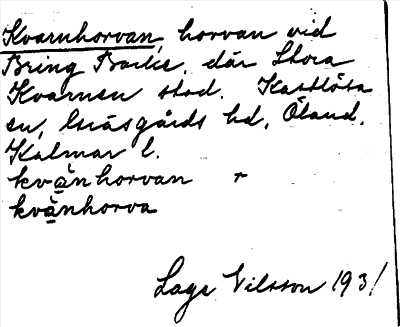 Kvarnhorvan, horvan vid
Bring Backe, där Stora
Kvarnen stod. Kastlösa
sn, Gräsgårds hd, Öland,
Kalmar l.
kvänhorvan r
kvänhorva
Lage Nilsson 1931